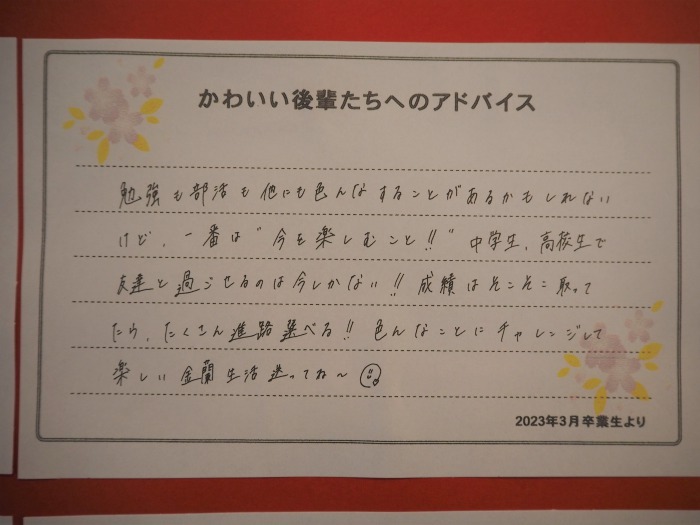 かわいい後輩たちへのアドバイス
勉強も部活も他にも色んなすることがあるかもしれない
けど、一番は"今を楽しむこと!!" 中学生、高校生で
友達と過ごせるのは今しかない!! 成績はそこそこ取って
たら、たくさん進路選べる!! 色んなことにチャレンジして
楽しい金蘭生活送ってね〜
2023年3月卒業生より